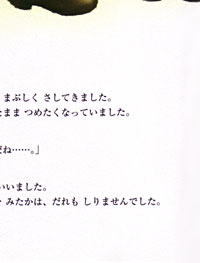 まぶしく さしてきました。
まま つめたくなっていました。
ね……。」
いいました。
みたかは、だれも しりませんでした。